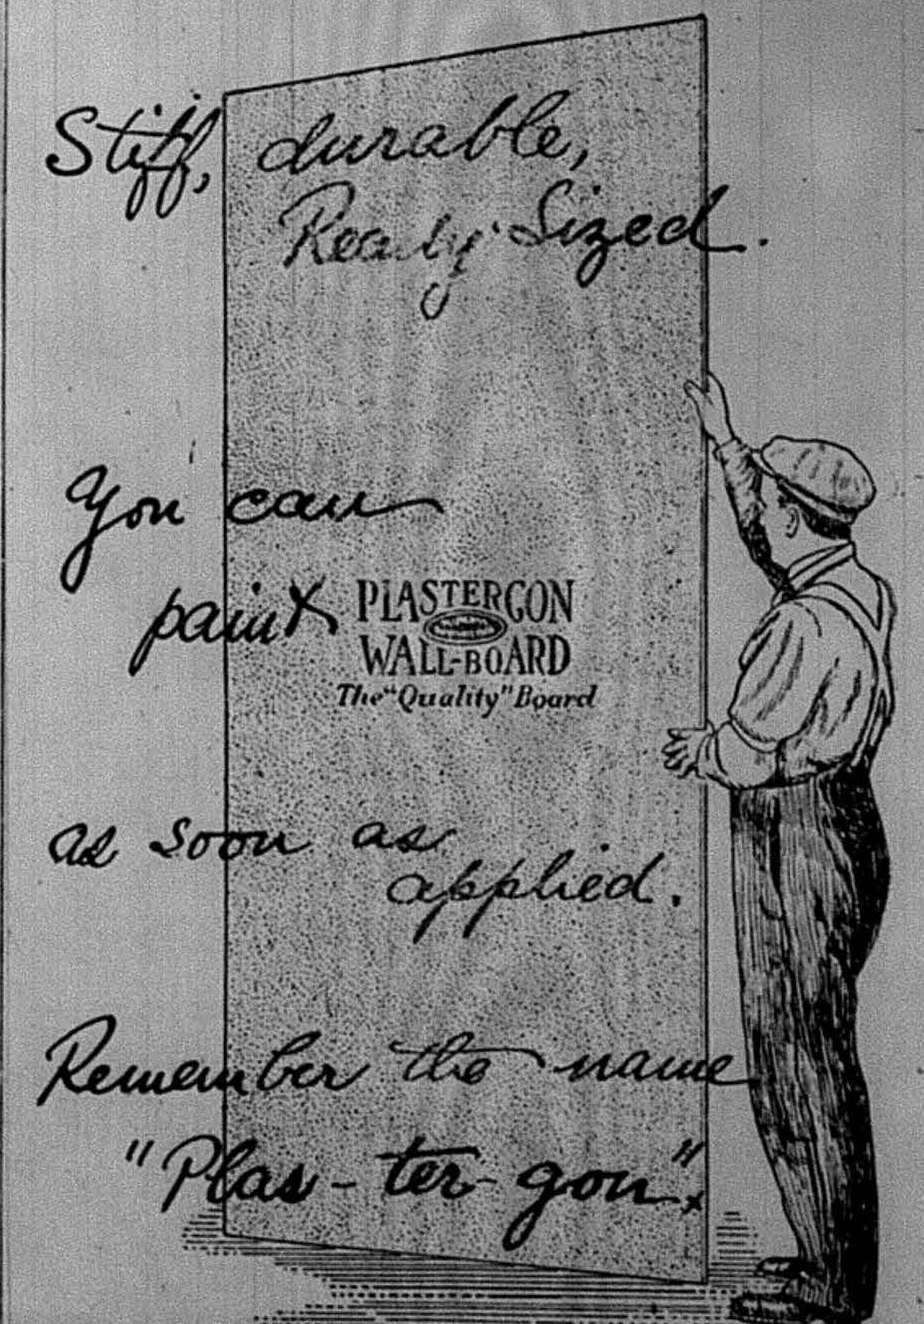 Stiff, durable,
Ready Sized.
You can
paint
PLASTERGON
WALL-BOARD
The "Quality" Board
as soon as
applied.
Remember the name
"Plas-ter-gon".